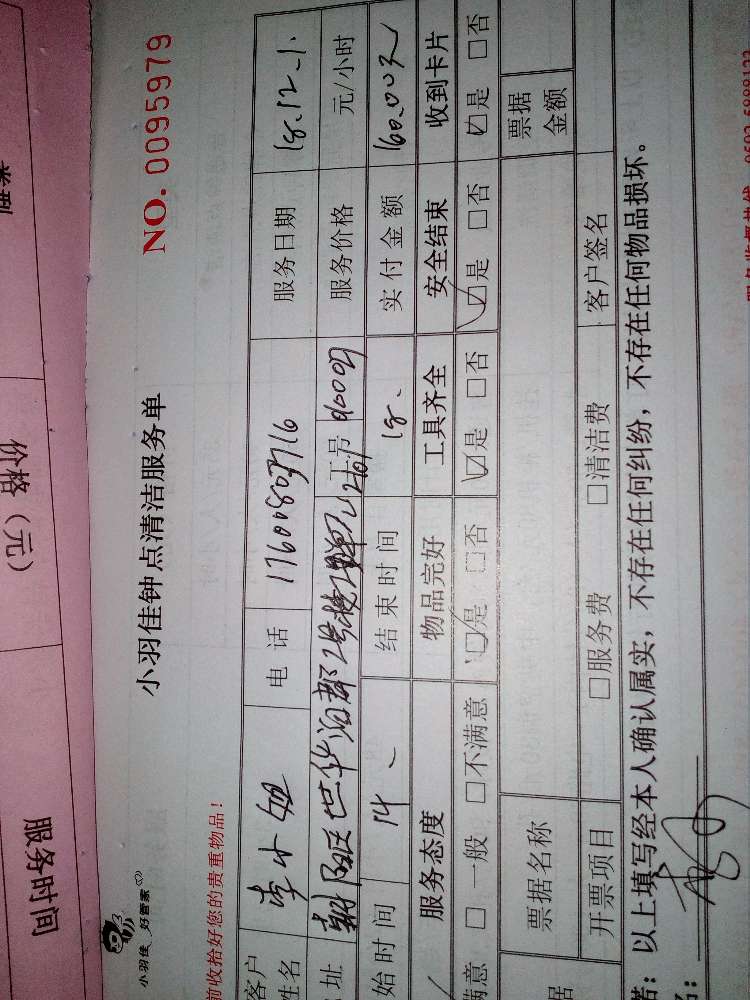 小羽佳 好管家
小羽佳钟点清洁服务单
NO. 0095979
前收拾好您的贵重物品!
客户姓名 李小姐 电话 17600803716 服务日期 18.12.1.
址 朝阳区世华泊郡2号楼2单元2701 工号 服务价格 元/小时
始时间 14 结束时间 18. 实付金额 160.00元
服务态度 物品完好 工具齐全 安全结束 收到卡片
满意 □一般 □不满意 ☑是 □否 ☑是 □否 ☑是 □否 ☑是 □否
据 票据名称 票据金额
开票项目 □服务费 □清洁费 客户签名
若:以上填写经本人确认属实,不存在任何纠纷,不存在任何物品损坏。
服务时间
价格(元)